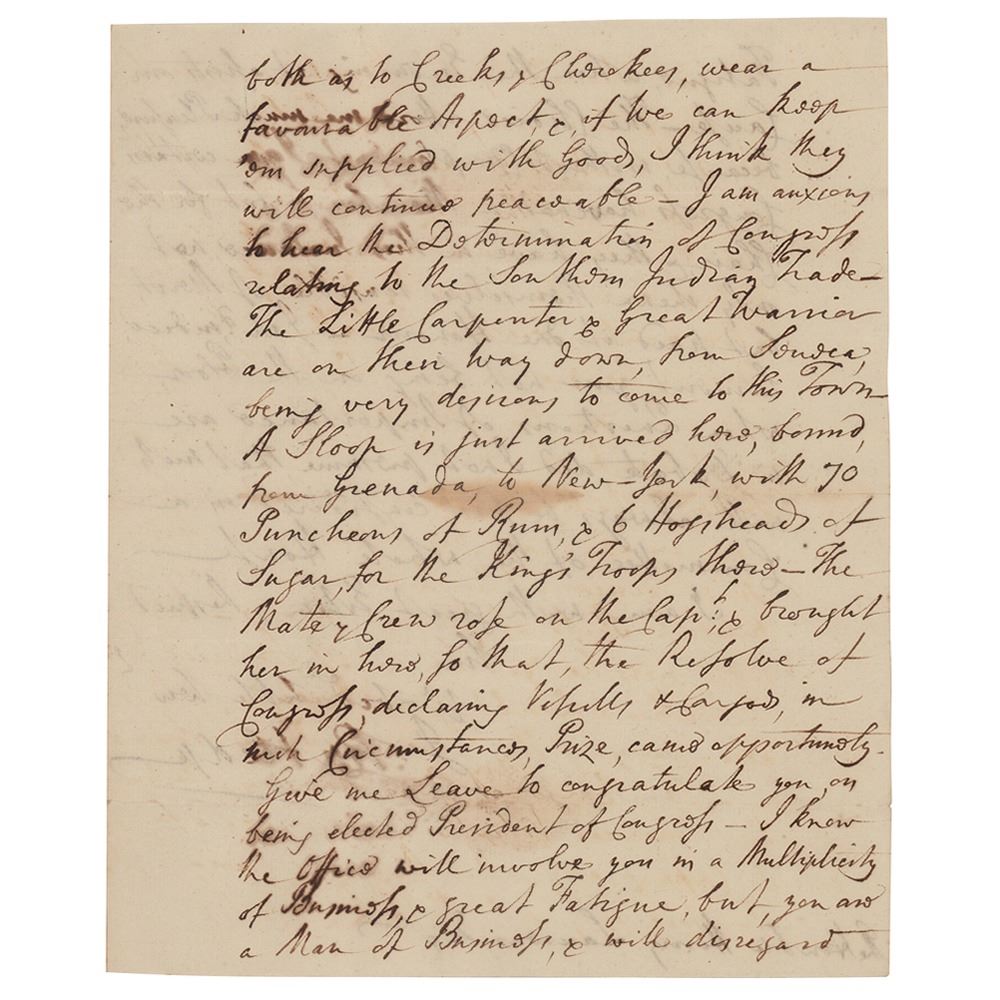 both as to Creeks & Cherokees, wear a
favourable Aspect, & if we can keep
'em supplied with Goods, I think they
will continue peaceable – I am anxious
to hear the Determination of Congress
relating to the Southern Indian Trade –
The Little Carpenter & Great Warrior
are on their way down, from Seneca,
being very desirous to come to this Town –
A Sloop is just arrived here, bound,
from Grenada, to New-York, with 70
Puncheons of Rum, & 6 Hogsheads of
Sugar, for the King's Troops there – The
Mate & Crew rose on the Capt: & brought
her in here, so that, the Resolve of
Congress, declaring Vessells & Cargoes, in
such Circumstances, Prize, came opportunely.
Give me Leave to congratulate you, on
being elected President of Congress – I know
the Office will involve you in a Multiplicity
of Business, & great Fatigue, but, you are
a Man of Business, & will disregard